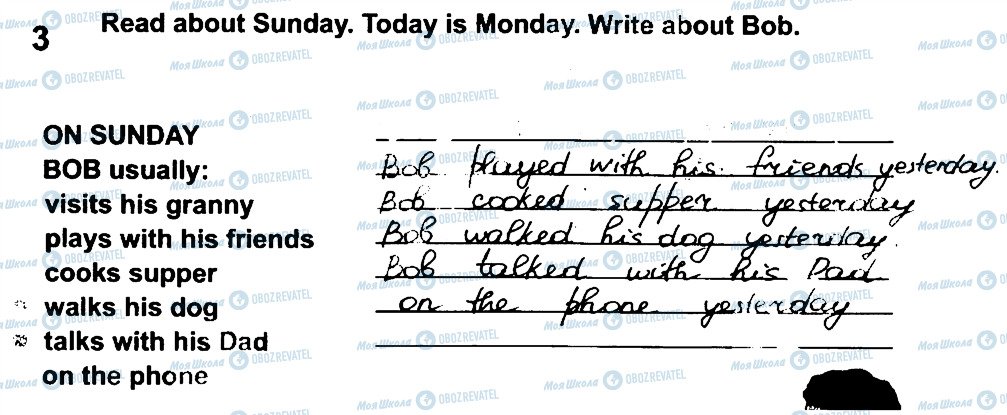 3 Read about Sunday. Today is Monday. Write about Bob.
ON SUNDAY
BOB usually:
visits his granny
plays with his friends
cooks supper
walks his dog
talks with his Dad
on the phone
Bob played with his friends yesterday.
Bob cooked supper yesterday
Bob walked his dog yesterday.
Bob talked with his Dad
on the phone yesterday
МояШкола OBOZREVATEL